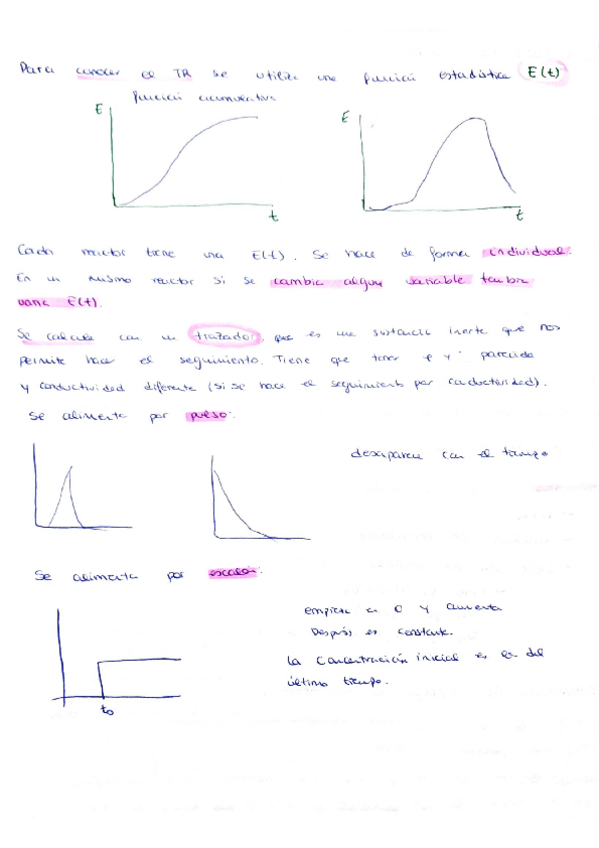 Para conocer el TR se utiliza una función estadística E(t)
función acumulativa
E
t
E
t
Cada reactor tiene una E(t). Se hace de forma individual.
En un mismo reactor si se cambia alguna variable también
varia E(t).
Se calcula con un trazador, que es una sustancia inerte que nos
permite hacer el seguimiento. Tiene que tener ρ y parecida
y conductividad diferente (si se hace el seguimiento por conductividad).
Se alimenta por pulso:
desaparece con el tiempo
Se alimenta por escalón:
empieza en 0 y aumenta
Después es constante.
La concentración inicial es la del
último tiempo.
t0